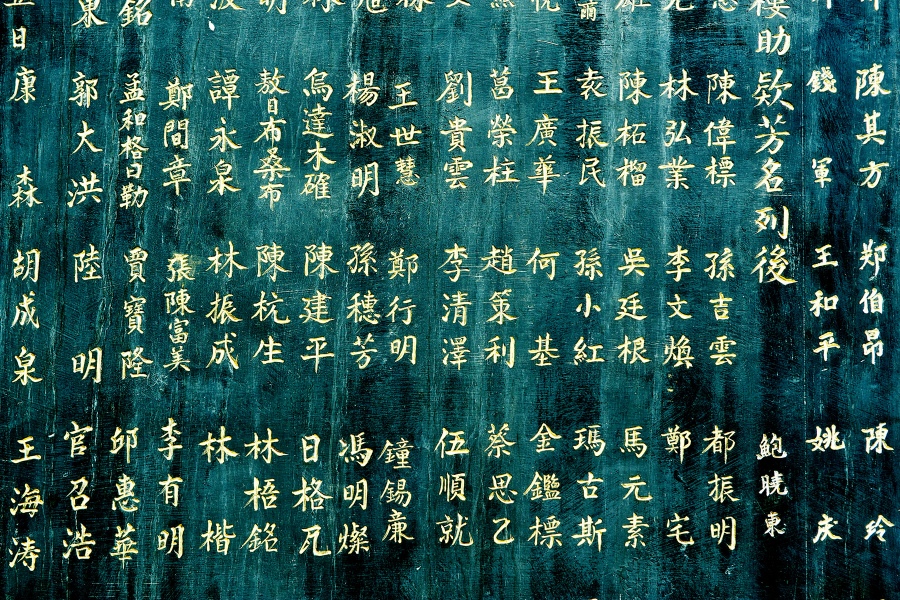 陳其方 郑伯昂 陳玲
錢軍 王和平 姚庆
樓助欵芳名列後 鮑曉東
陳偉標 孫吉雲 都振明
林弘業 李文煥 鄭宅
陳柘榴 吳廷根 馬元素
袁振民 孫小紅 瑪古斯
王廣華 何基 金鑑標
葛榮柱 趙策利 蔡思乙
劉貴雲 李清澤 伍順就
王世慧 鄭行明 鐘錫廉
楊淑明 孫穗芳 馮明燦
烏達木確 陳建平 日格瓦
敖日布桑布 陳杭生 林梧銘
譚永泉 林振成 林楷
鄭間章 張陳富美 李有明
銘 孟和格日勒 賈寶隆 邱惠華
東 郭大洪 陸明 官召浩
日 康森 胡成泉 王海涛